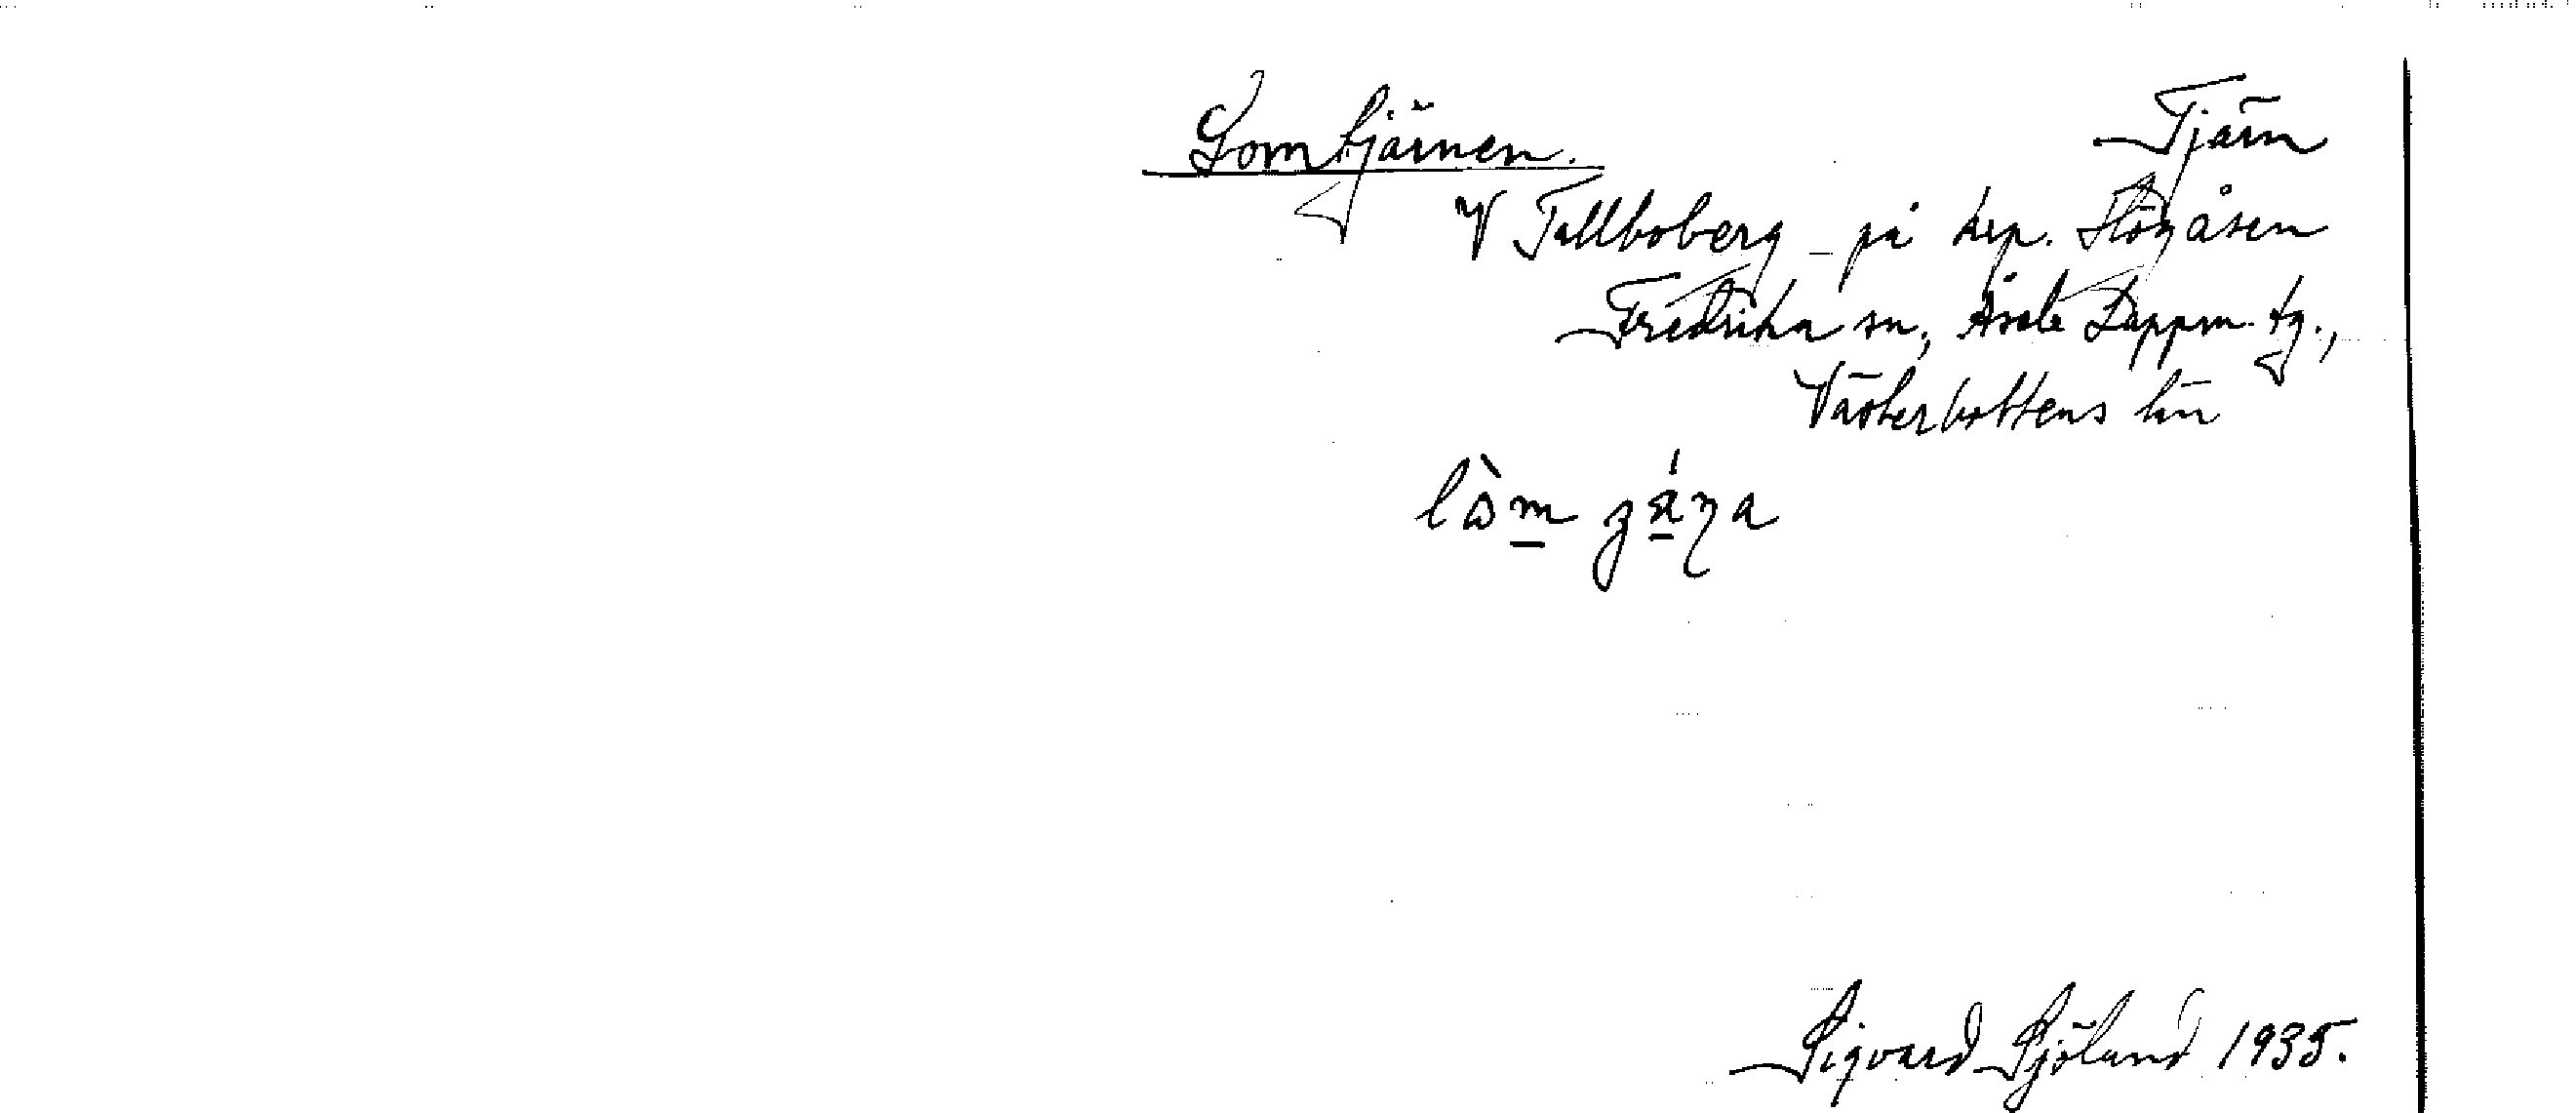 Lomtjärnen.
Tjärn
V Tallboberg på krp. Högåsen
Fredrika sn, Åsele Lappm. tg.,
Västerbottens län
Sigvard Sjölund 1935.